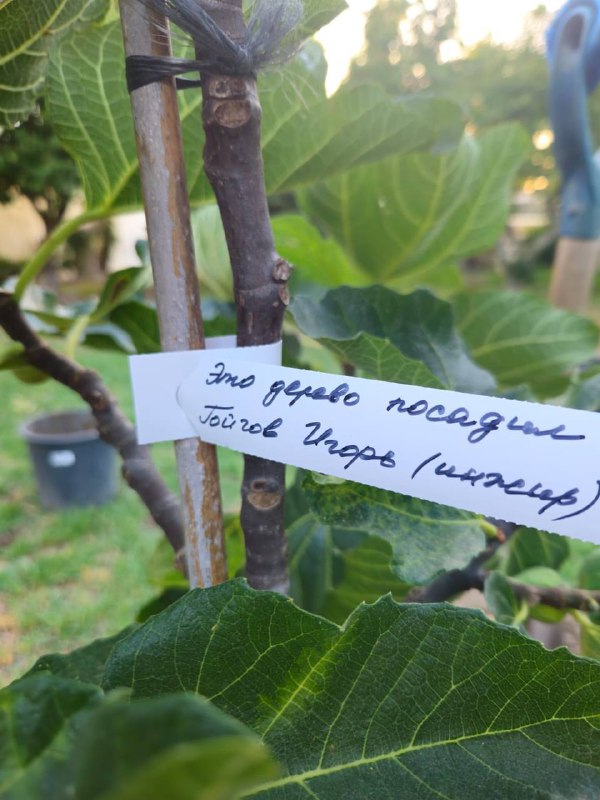 Это дерево посадил
Гойгов Игорь (инжир)